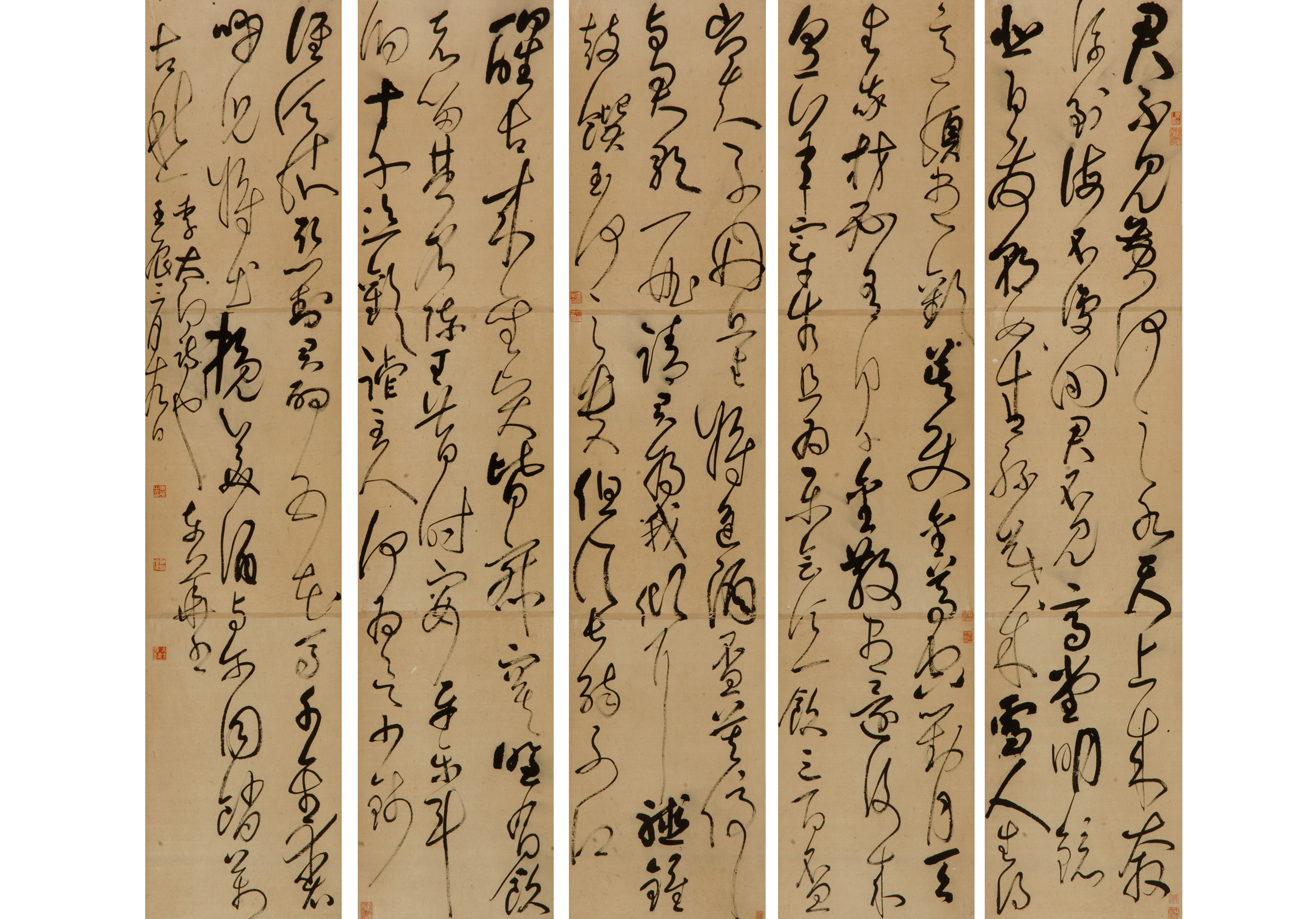 君不見黃河之水天上來奔
流到海不復回君不見高堂明鏡
悲白髮朝如青絲暮成雪人生得
意須盡歡莫使金尊空對月天
生我材必有用千金散盡還復來
烹羊宰牛且為樂會須一飲三百盃
岑夫子丹丘生將進酒盃莫停
與君歌一曲請君為我傾耳聽鐘
鼓饌玉何足貴但願長醉不願
醒古來聖賢皆寂寞惟有飲
者留其名陳王昔時宴平樂斗
酒十千恣歡謔主人何為言少錢
徑須沽取對君酌五花馬千金裘
呼兒將出換美酒與爾同銷萬
古愁
李太白詩也
壬辰三月十九日